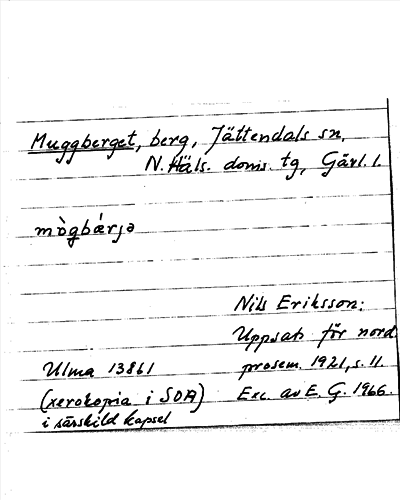 Muggberget, berg, Jättendals sn,
N. Häls. doms. tg, Gävl. l.
mògbárjə
Nils Eriksson:
Uppsats för nord.
prosem. 1921, s. 11.
Exc. av E. G. 1966.
Ulma 13861
(xerokopia i SOA)
i särskild kapsel